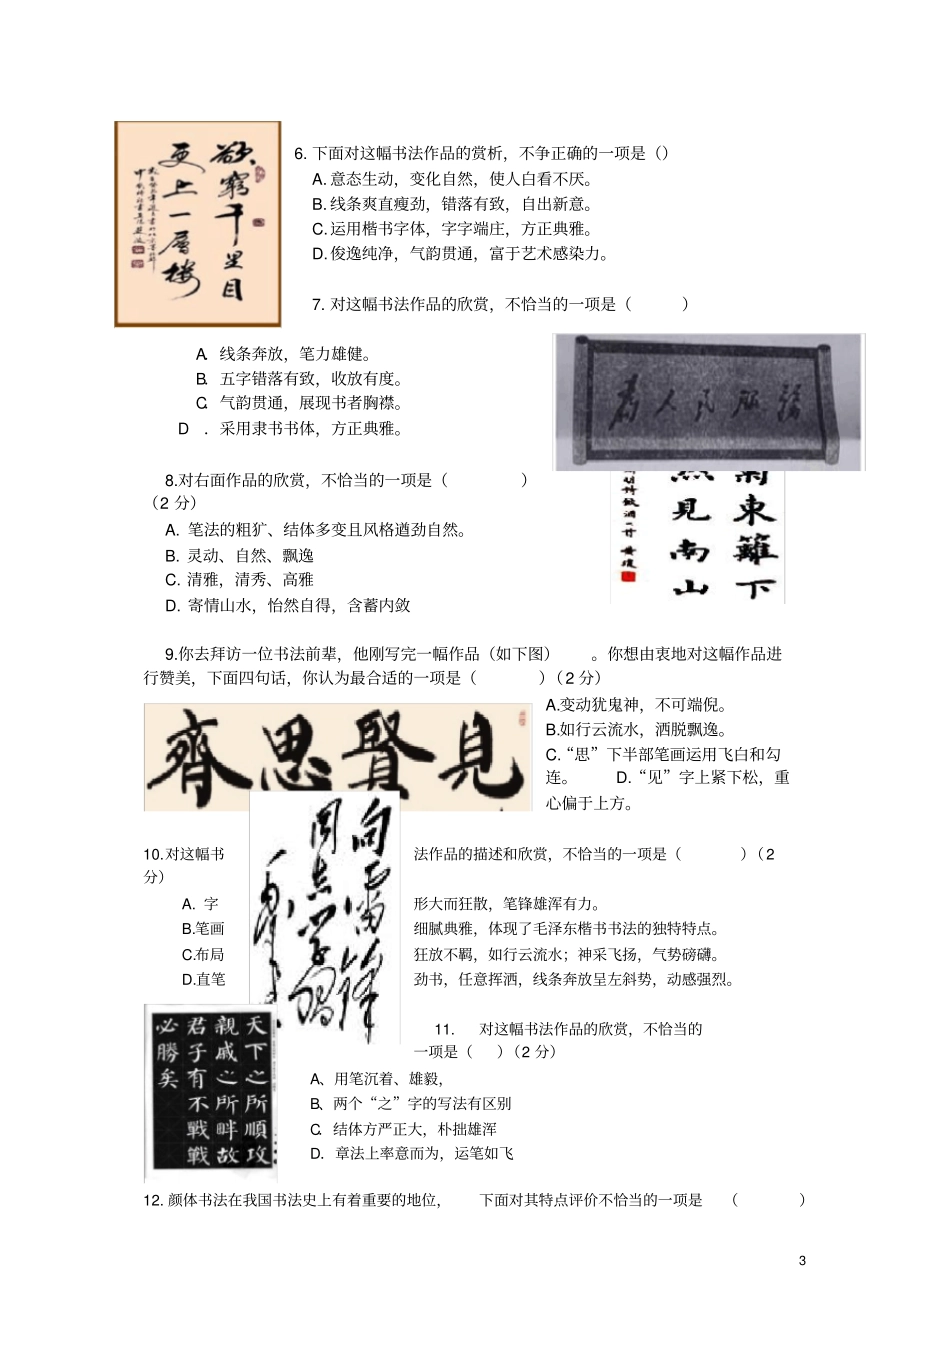 欲窮千里目
更上一層樓
6. 下面对这幅书法作品的赏析，不争正确的一项是（）
A. 意态生动，变化自然，使人白看不厌。
B. 线条爽直瘦劲，错落有致，自出新意。
C. 运用楷书字体，字字端庄，方正典雅。
D. 俊逸纯净，气韵贯通，富于艺术感染力。
7. 对这幅书法作品的欣赏，不恰当的一项是（ ）
A. 线条奔放，笔力雄健。
B. 五字错落有致，收放有度。
C. 气韵贯通，展现书者胸襟。
D ．采用隶书书体，方正典雅。
为人民服务
8.对右面作品的欣赏，不恰当的一项是（ ）
（2 分）
A. 笔法的粗犷、结体多变且风格遒劲自然。
B. 灵动、自然、飘逸
C. 清雅，清秀、高雅
D. 寄情山水，怡然自得，含蓄内敛
菊東籬下
然見南山
9.你去拜访一位书法前辈，他刚写完一幅作品（如下图） 。你想由衷地对这幅作品进
行赞美，下面四句话，你认为最合适的一项是（ ）（2 分）
見賢思齊
A.变动犹鬼神，不可端倪。
B.如行云流水，洒脱飘逸。
C.“思”下半部笔画运用飞白和勾
连。 D.“见”字上紧下松，重
心偏于上方。
向雷锋
同志学习
毛泽东
10.对这幅书 法作品的描述和欣赏，不恰当的一项是（ ）（2
分）
A. 字 形大而狂散，笔锋雄浑有力。
B.笔画 细腻典雅，体现了毛泽东楷书书法的独特特点。
C.布局 狂放不羁，如行云流水；神采飞扬，气势磅礴。
D.直笔 劲书，任意挥洒，线条奔放呈左斜势，动感强烈。
天下之所順攻
親戚之所畔故
君子有不戰戰
必勝矣
11. 对这幅书法作品的欣赏，不恰当的
一项是（ ）（2 分）
A、用笔沉着、雄毅，
B、两个“之”字的写法有区别
C. 结体方严正大，朴拙雄浑
D. 章法上率意而为，运笔如飞
12. 颜体书法在我国书法史上有着重要的地位， 下面对其特点评价不恰当的一项是 （ ）
3